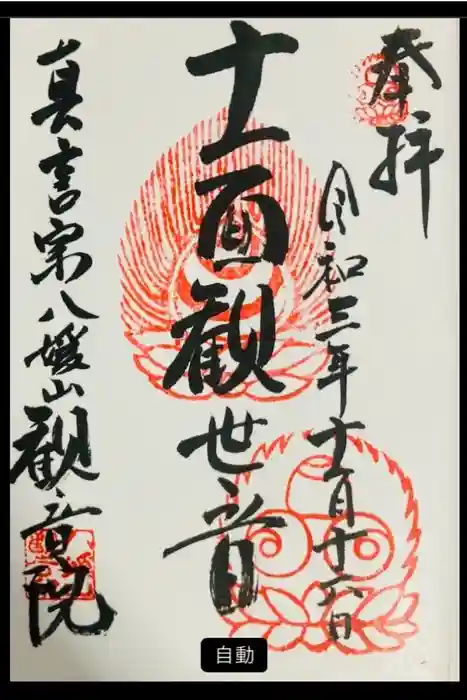 奉拝
令和三年十一月十六日
十一面観世音
真言宗八媛山観音院
自動